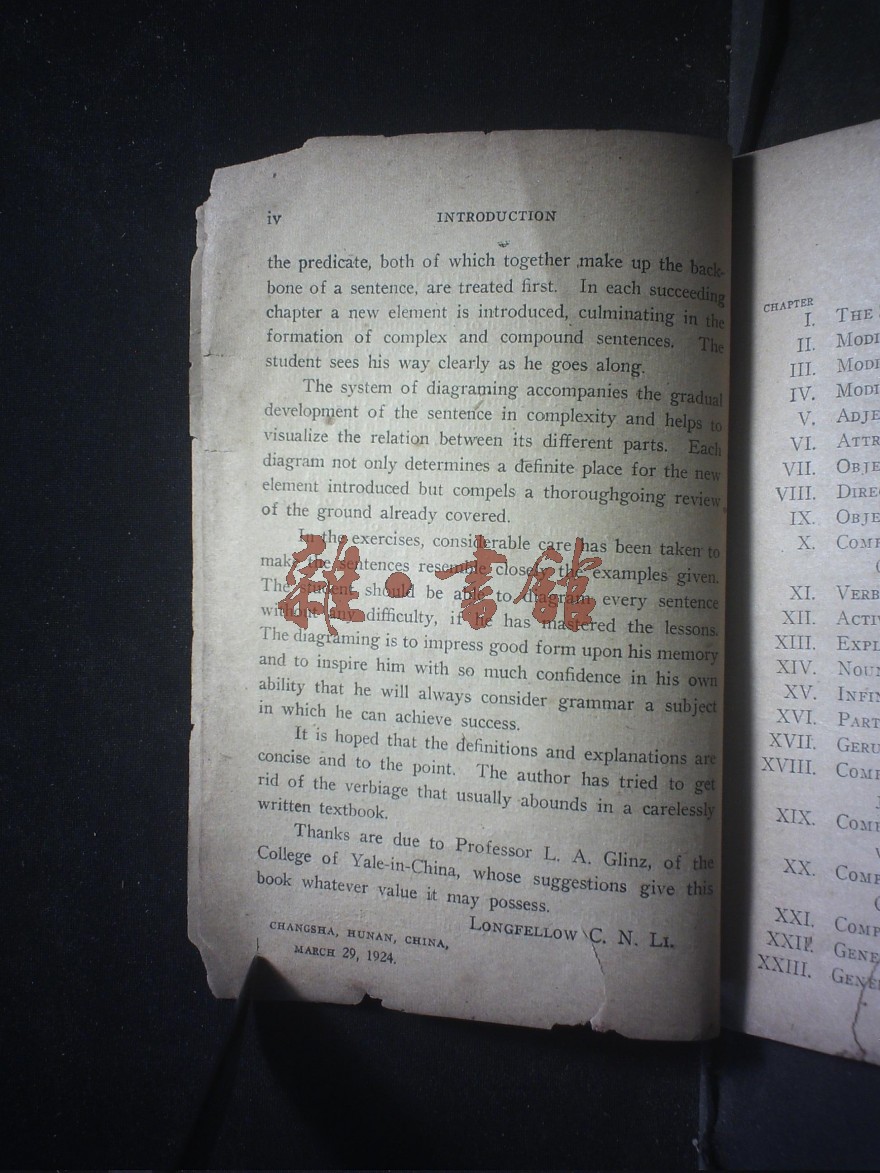 iv INTRODUCTION
the predicate, both of which together make up the back-
bone of a sentence, are treated first. In each succeeding
chapter a new element is introduced, culminating in the
formation of complex and compound sentences. The
student sees his way clearly as he goes along.
The system of diagraming accompanies the gradual
development of the sentence in complexity and helps to
visualize the relation between its different parts. Each
diagram not only determines a definite place for the new
element introduced but compels a thoroughgoing review
of the ground already covered.
In the exercises, considerable care has been taken to
make the sentences resemble closely the examples given.
The student should be able to diagram every sentence
without any difficulty, if he has mastered the lessons.
The diagraming is to impress good form upon his memory
and to inspire him with so much confidence in his own
ability that he will always consider grammar a subject
in which he can achieve success.
It is hoped that the definitions and explanations are
concise and to the point. The author has tried to get
rid of the verbiage that usually abounds in a carelessly
written textbook.
Thanks are due to Professor L. A. Glinz, of the
College of Yale-in-China, whose suggestions give this
book whatever value it may possess.
LONGFELLOW C. N. LI.
CHANGSHA, HUNAN, CHINA,
MARCH 29, 1924.
雜·書館
CHAPTER
I. THE
II. MODI
III. MODI
IV. MODI
V. ADJE
VI. ATTR
VII. OBJE
VIII. DIRE
IX. OBJE
X. COMP
XI. VERB
XII. ACTIV
XIII. EXPL
XIV. NOUN
XV. INFIN
XVI. PART
XVII. GERU
XVIII. COMP
XIX. COMP
XX. COMP
XXI. COMP
XXII. GENE
XXIII. GENE